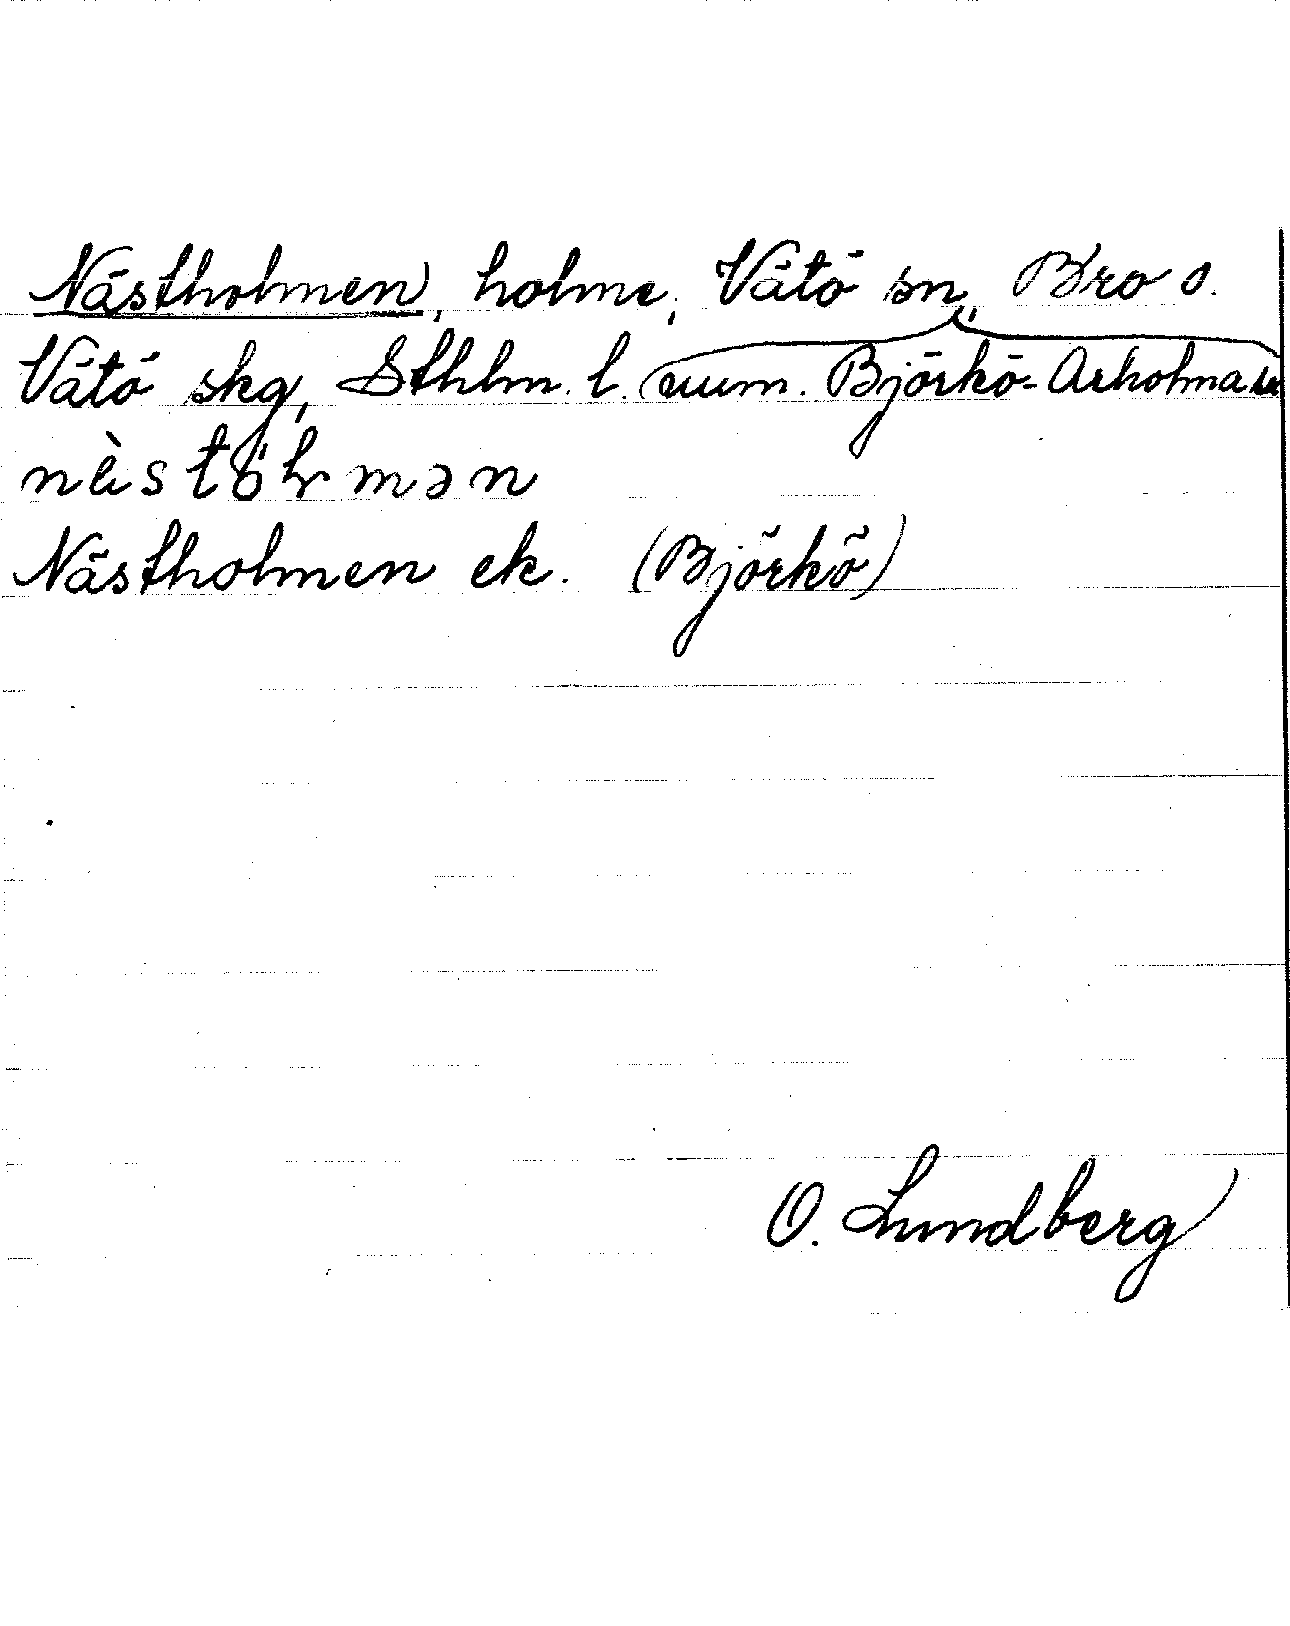 Nästholmen, holme, Vätö sn, Bro o.
Vätö skg, Sthlm. l. (num. Björkö-Arholma sn
næ̀stɵ̀ɽmən
Nästholmen ek. (Björkö)
O. Lundberg